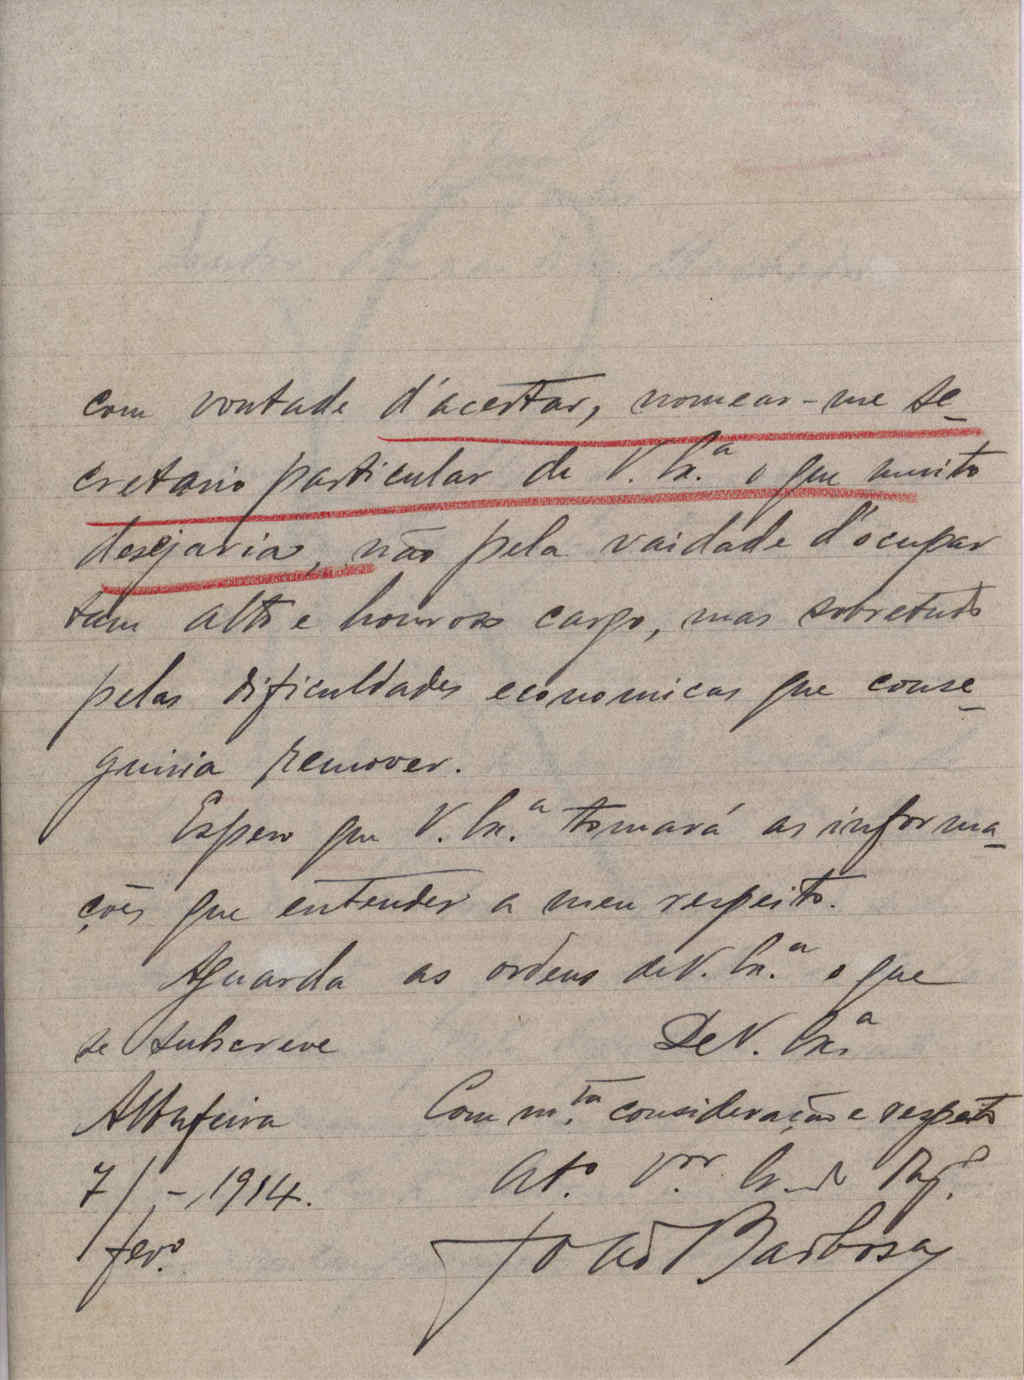 com vontade d'acertar, nomear-me se-
cretario particular de V. Ex.ª o que muito
desejaria, não pela vaidade d'ocupar
tam alto e honroso cargo, mas sobretudo
pelas dificuldades economicas que conse-
guiria remover.
Espero que V. Ex.ª tomará as informa-
ções que entender a meu respeito.
Aguarda as ordens de V. Ex.ª o que
se subscreve De V. Ex.ª
Albufeira Com m.ta consideração e respeito
7/ -, 1914. At.º V.or
fev.º João Barbosa